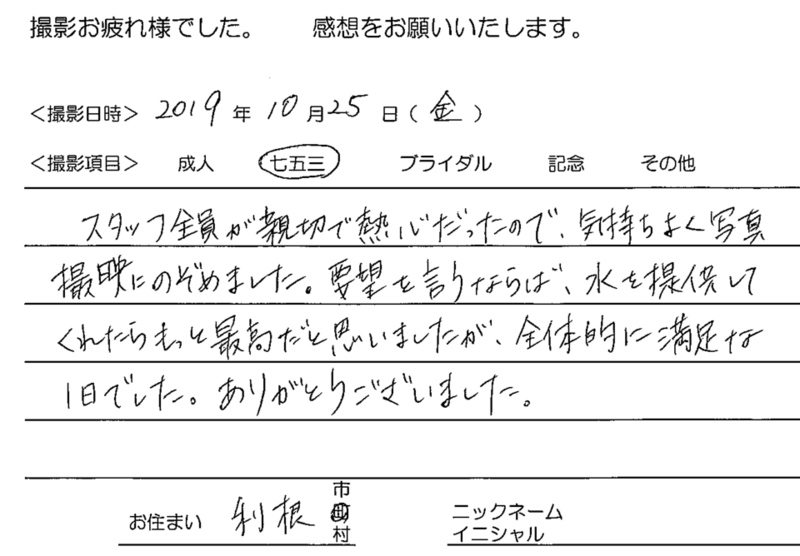 撮影お疲れ様でした。 感想をお願いいたします。
＜撮影日時＞ 2019 年 10 月 25 日 ( 金 )
＜撮影項目＞ 成人 七五三 ブライダル 記念 その他
スタッフ全員が親切で熱心だったので、気持ちよく写真
撮映にのぞめました。要望を言うならば、水を提供して
くれたらもっと最高だと思いましたが、全体的に満足な
1日でした。ありがとうございました。
お住まい 利根 市町村
ニックネーム
イニシャル